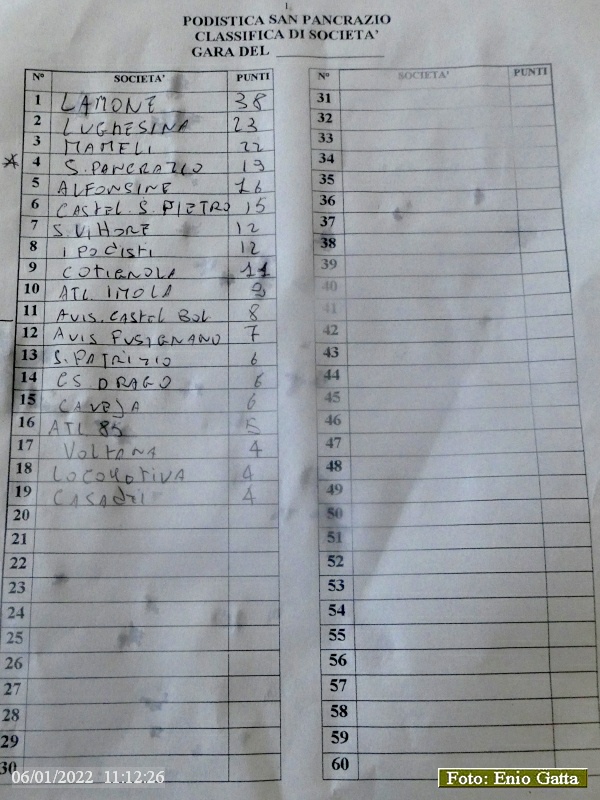 1.
PODISTICA SAN PANCRAZIO
CLASSIFICA DI SOCIETA'
GARA DEL
N° SOCIETA' PUNTI
1 LAMONE 38
2 LUGHESINA 23
3 MAMELI 22
4 S. PANCRAZIO 19
5 ALFONSINE 16
6 CASTEL S. PIETRO 15
7 S. VITTORE 12
8 I PODISTI 12
9 COTIGNOLA 11
10 ATL IMOLA 9
11 AVIS. CASTEL BOL 8
12 AVIS FUSIGNANO 7
13 S. PATRIZIO 6
14 CS DRAGO 6
15 CAVEJA 6
16 ATL 85 5
17 VOLTANA 4
18 LOCOMOTIVA 4
19 CASADEI 4
20
21
22
23
24
25
26
27
28
29
30
N° SOCIETA' PUNTI
31
32
33
34
35
36
37
38
39
40
41
42
43
44
45
46
47
48
49
50
51
52
53
54
55
56
57
58
59
60
06/01/2022 11:12:26
Foto: Enio Gatta